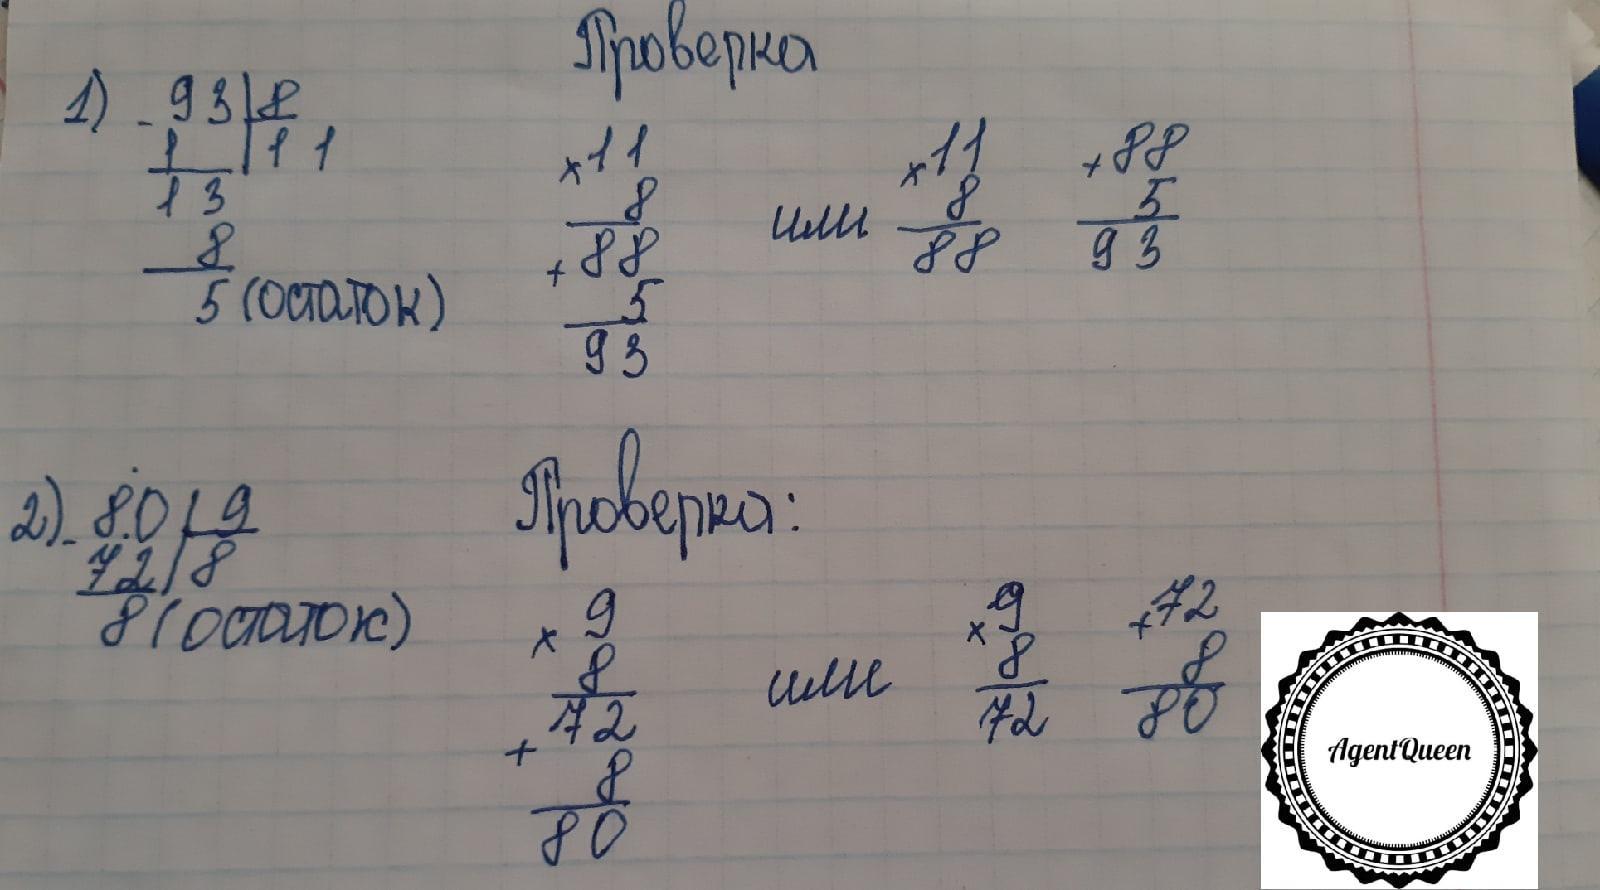 Проверка
1) - 93 | 8
1 | 11
13
8
5 (остаток)
× 11
8
+ 88
5
93
или
× 11
8
88
+ 88
5
93
2) - 8.0 | 9
72 | 8
8 (остаток)
Проверка:
× 9
8
+ 72
8
80
или
× 9
8
72
+ 72
8
80
AgentQueen